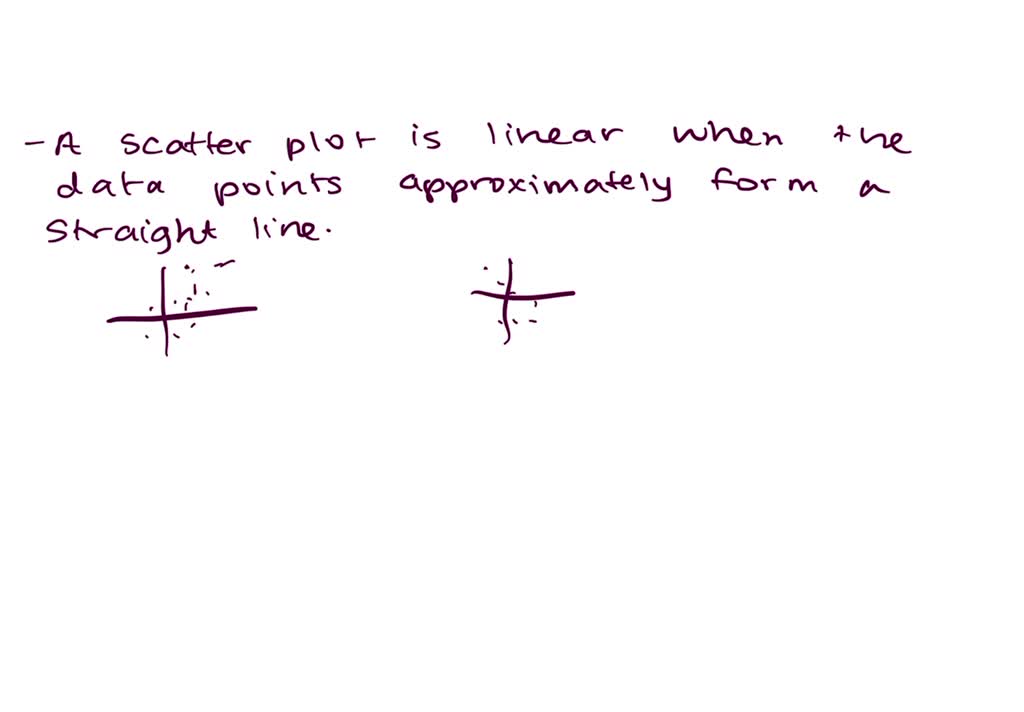 - A scatter plot is linear when the
data points approximately form a
straight line.